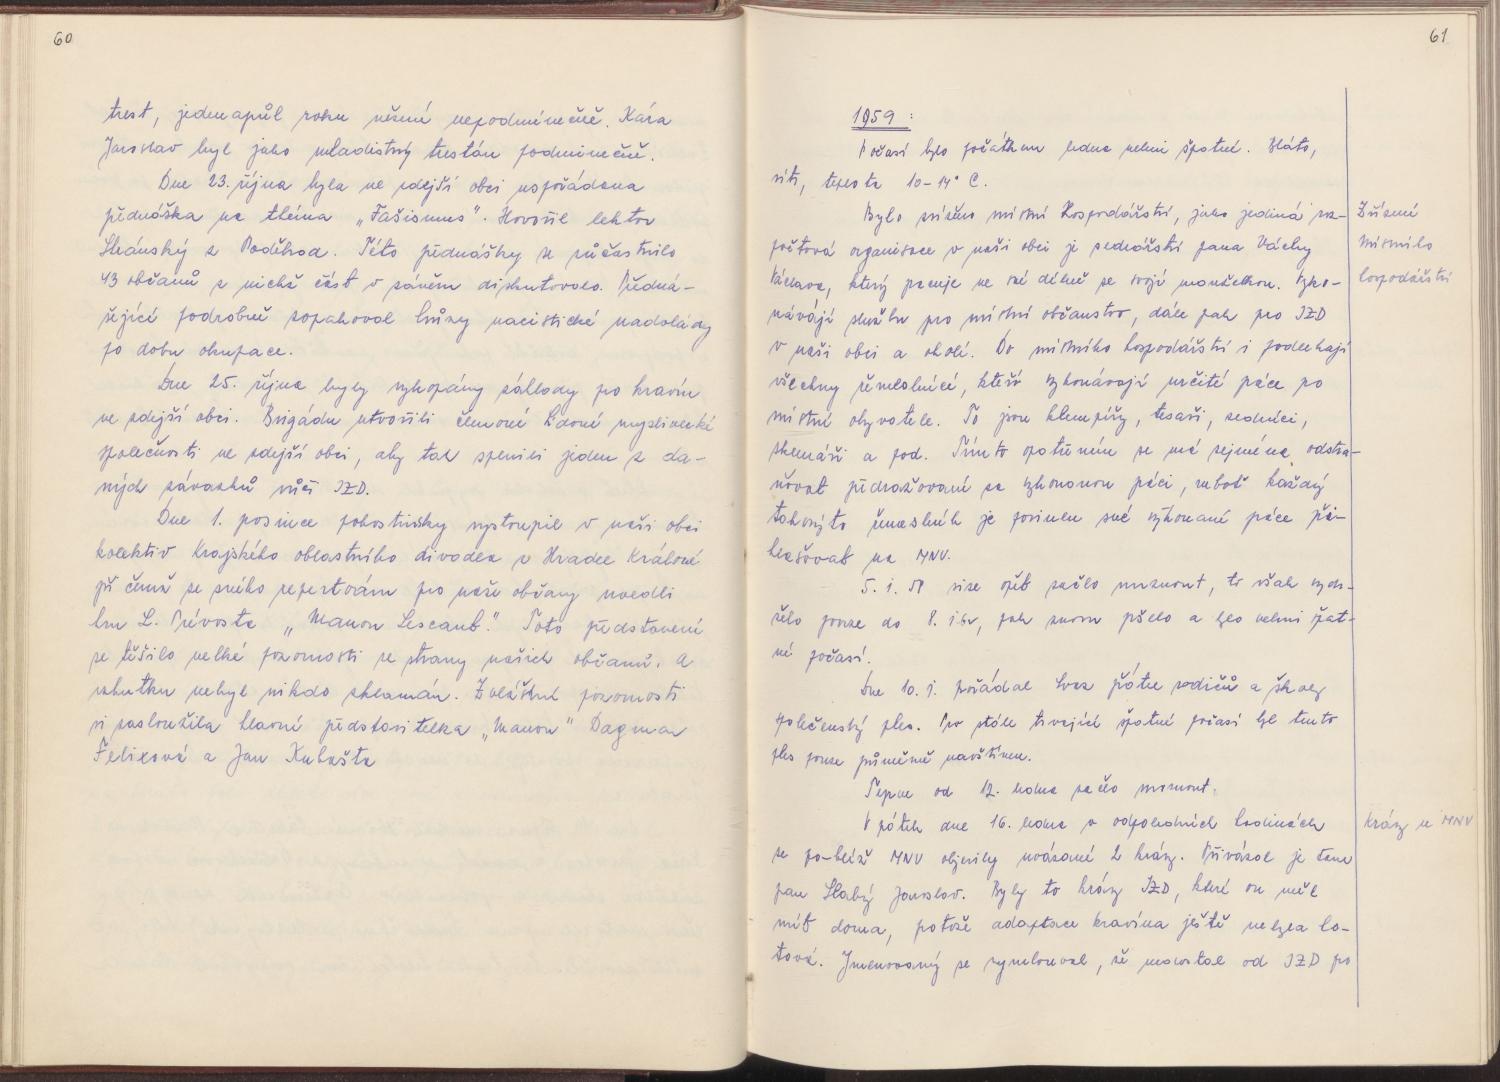 60
trest, jedenapůl roku vězení nepodmínečně. Kára
Jaroslav byl jako mladistvý trestán podmínečně.
Dne 23. října byla ve zdejší obci uspořádana
přednáška na théma „Fašismus". Hovořil lektor
Stránský z Poděhod. Této přednášky se zúčastnilo
43 občanů z nichž část v závěru diskutovala. Předná-
šející podrobně zopakoval hrůzy nacistické nadvlády
po dobu okupace.
Dne 25. října byly vykopány základy po kravín
ve zdejší obci. Brigádu utvořili členové Lidové myslivecké
společnosti ve zdejší obci, aby tak splnili jeden z da-
ných závazků vůči JZD.
Dne 1. prosince pohostinsky vystoupil v naší obci
kolektiv Krajského oblastního divadla v Hradci Králové
při čemž ze svého repertoáru pro naše občany uvedli
hru L. Prévosta „Manon Lescaut." Toto představení
se těšilo velké pozornosti ze strany našich občanů. A
vskutku nebyl nikdo zklamán. Zvláštní pozornosti
si zasloužila hlavní představitelka „Manon" Dagmar
Felixová a Jan Kubašta
61
1959 :
Počasí bylo počátkem ledna velmi špatné. Bláto,
teplota 10-14° C.
Bylo zřízeno místní Hospodářství, jako jediná roz-
počtová organisace v naší obci je sedlářství pana Váchy
Václava, který pracuje ve své dílně se svojí manželkou. Vyko-
návají službu pro místní občanstvo, dále pak pro JZD
v naší obci a okolí. Do místního hospodářství i podléhají
všechny řemeslníci, kteří vykonávají určité práce po
místní obyvatele. To jsou klempířy, tesaři, zedníci,
sklenáři a pod. Tímto opatřením se má zejména odstra-
ňovat předražování za vykonanou práci, neboť každý
takovýto řemeslník je povinen své vykonané práce při-
hlašovat na MNV.
5. 1. 59 sice opět začlo mrznout, to však vydr-
želo pouze do 8. pak znovu pršelo a bylo velmi špat-
né počasí.
Dne 10. 1. pořádal Svaz přátel rodičů a školy
společenský ples. Pro stále trvající špatné počasí byl tento
ples pouze průměrně navštíven.
Teprve od 12. ledna začlo mrznout.
V pátek dne 16. ledna v odpoledních hodinách
se po-blíž MNV objevily uvázané 2 krávy. Přivázal je tam
pan Slabý Jaroslav. Byly to krávy JZD, které on měl
mít doma, potože adaptace kravína ještě nebyla ho-
tová. Jmenovaný se vymlouval, že nedostal od JZD po
Zřízení
Místního
hospodářství
Krávy u MNV